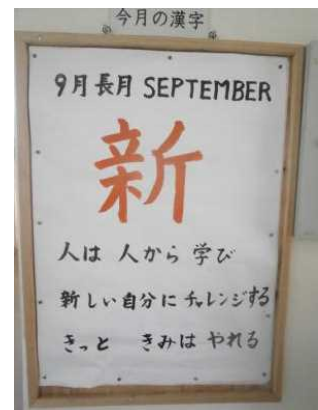 今月の漢字
9月長月 SEPTEMBER
新
人は 人から 学び
新しい自分に チャレンジする
きっと きみは やれる